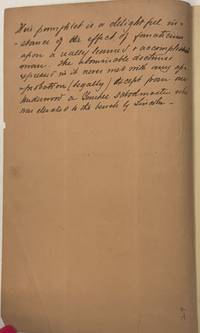 This pamphlet is a delightful in-
-stance of the effect of fanaticism
upon a really learned & accomplished
man. The abominable doctrines
expressed in it never met with any ap-
-probation (legally) except from one
Underwood a Yankee schoolmaster who
was elevated to the bench by Lincoln –